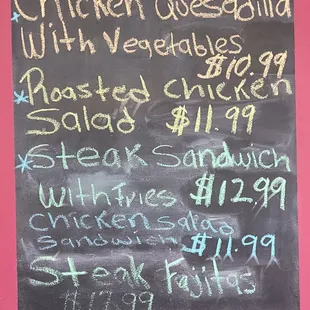 *Chicken Quesadilla
With Vegetables
$10.99
*Roasted chicken
Salad $11.99
*Steak Sandwich
With Fries $12.99
Chicken Salad
Sandwich $11.99
Steak Fajitas
$17.99